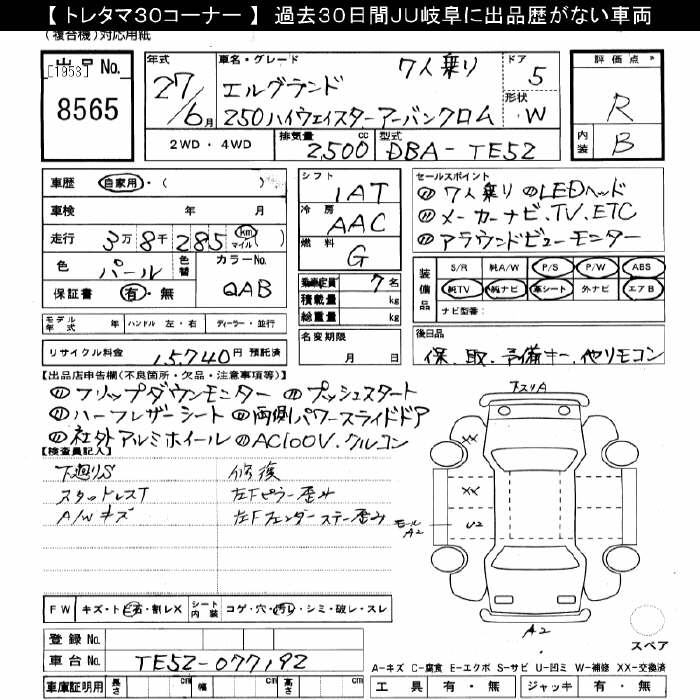 【 トレタマ30コーナー 】 過去30日間JU岐阜に出品歴がない車両
(複合機)対応用紙
出品No.
[1953]
8565
年式
27/6月
車名・グレード
7人乗り
エルグランド
250ハイウェイスターアーバンクロム
ドア
5
形状
W
評価点
R
内装
B
2WD ・ 4WD
排気量
2500cc
型式
DBA-TE52
車歴 自家用・( )
車検 年 月
走行 3万8千285 km マイル ( )
色 パール 色替 カラーNo.
QAB
保証書 有・無
モデル年式 年 ハンドル 左・右 ディーラー・並行
リサイクル料金 15,740円 預託済
シフト
IAT
冷房
AAC
燃料
G
乗車定員 7名
積載量 kg
総重量 kg
名変期限
月 日
セールスポイント
7人乗り LEDヘッド
メーカーナビ、TV、ETC
アラウンドビューモニター
装備品
S/R 純A/W P/S P/W ABS
純TV 純ナビ 革シート 外ナビ エアB
ナビ型番:
後日品
保、取、予備キー、他リモコン
【出品店申告欄(不良箇所・欠品・注意事項等)】
フリップダウンモニター プッシュスタート
ハーフレザーシート 両側パワースライドドア
社外アルミホイール AC100V、クルコン
【検査員記入】
下廻りS 修復
スタットレスT 左Fピラー歪み
A/Wキズ 左Fフェンダーステー歪み
スリA
XX
U2
モール
A2
A2
スペア
FW キズ・トビ石・割レX シート内装 コゲ・穴・汚レ・シミ・破レ・スレ
登録No.
車台No. TE52-077192
車庫証明用 長さ cm 幅 cm 高さ cm
A-キズ C-腐食 E-エクボ S-サビ U-凹ミ W-補修 XX-交換済
工具 有・無 ジャッキ 有・無